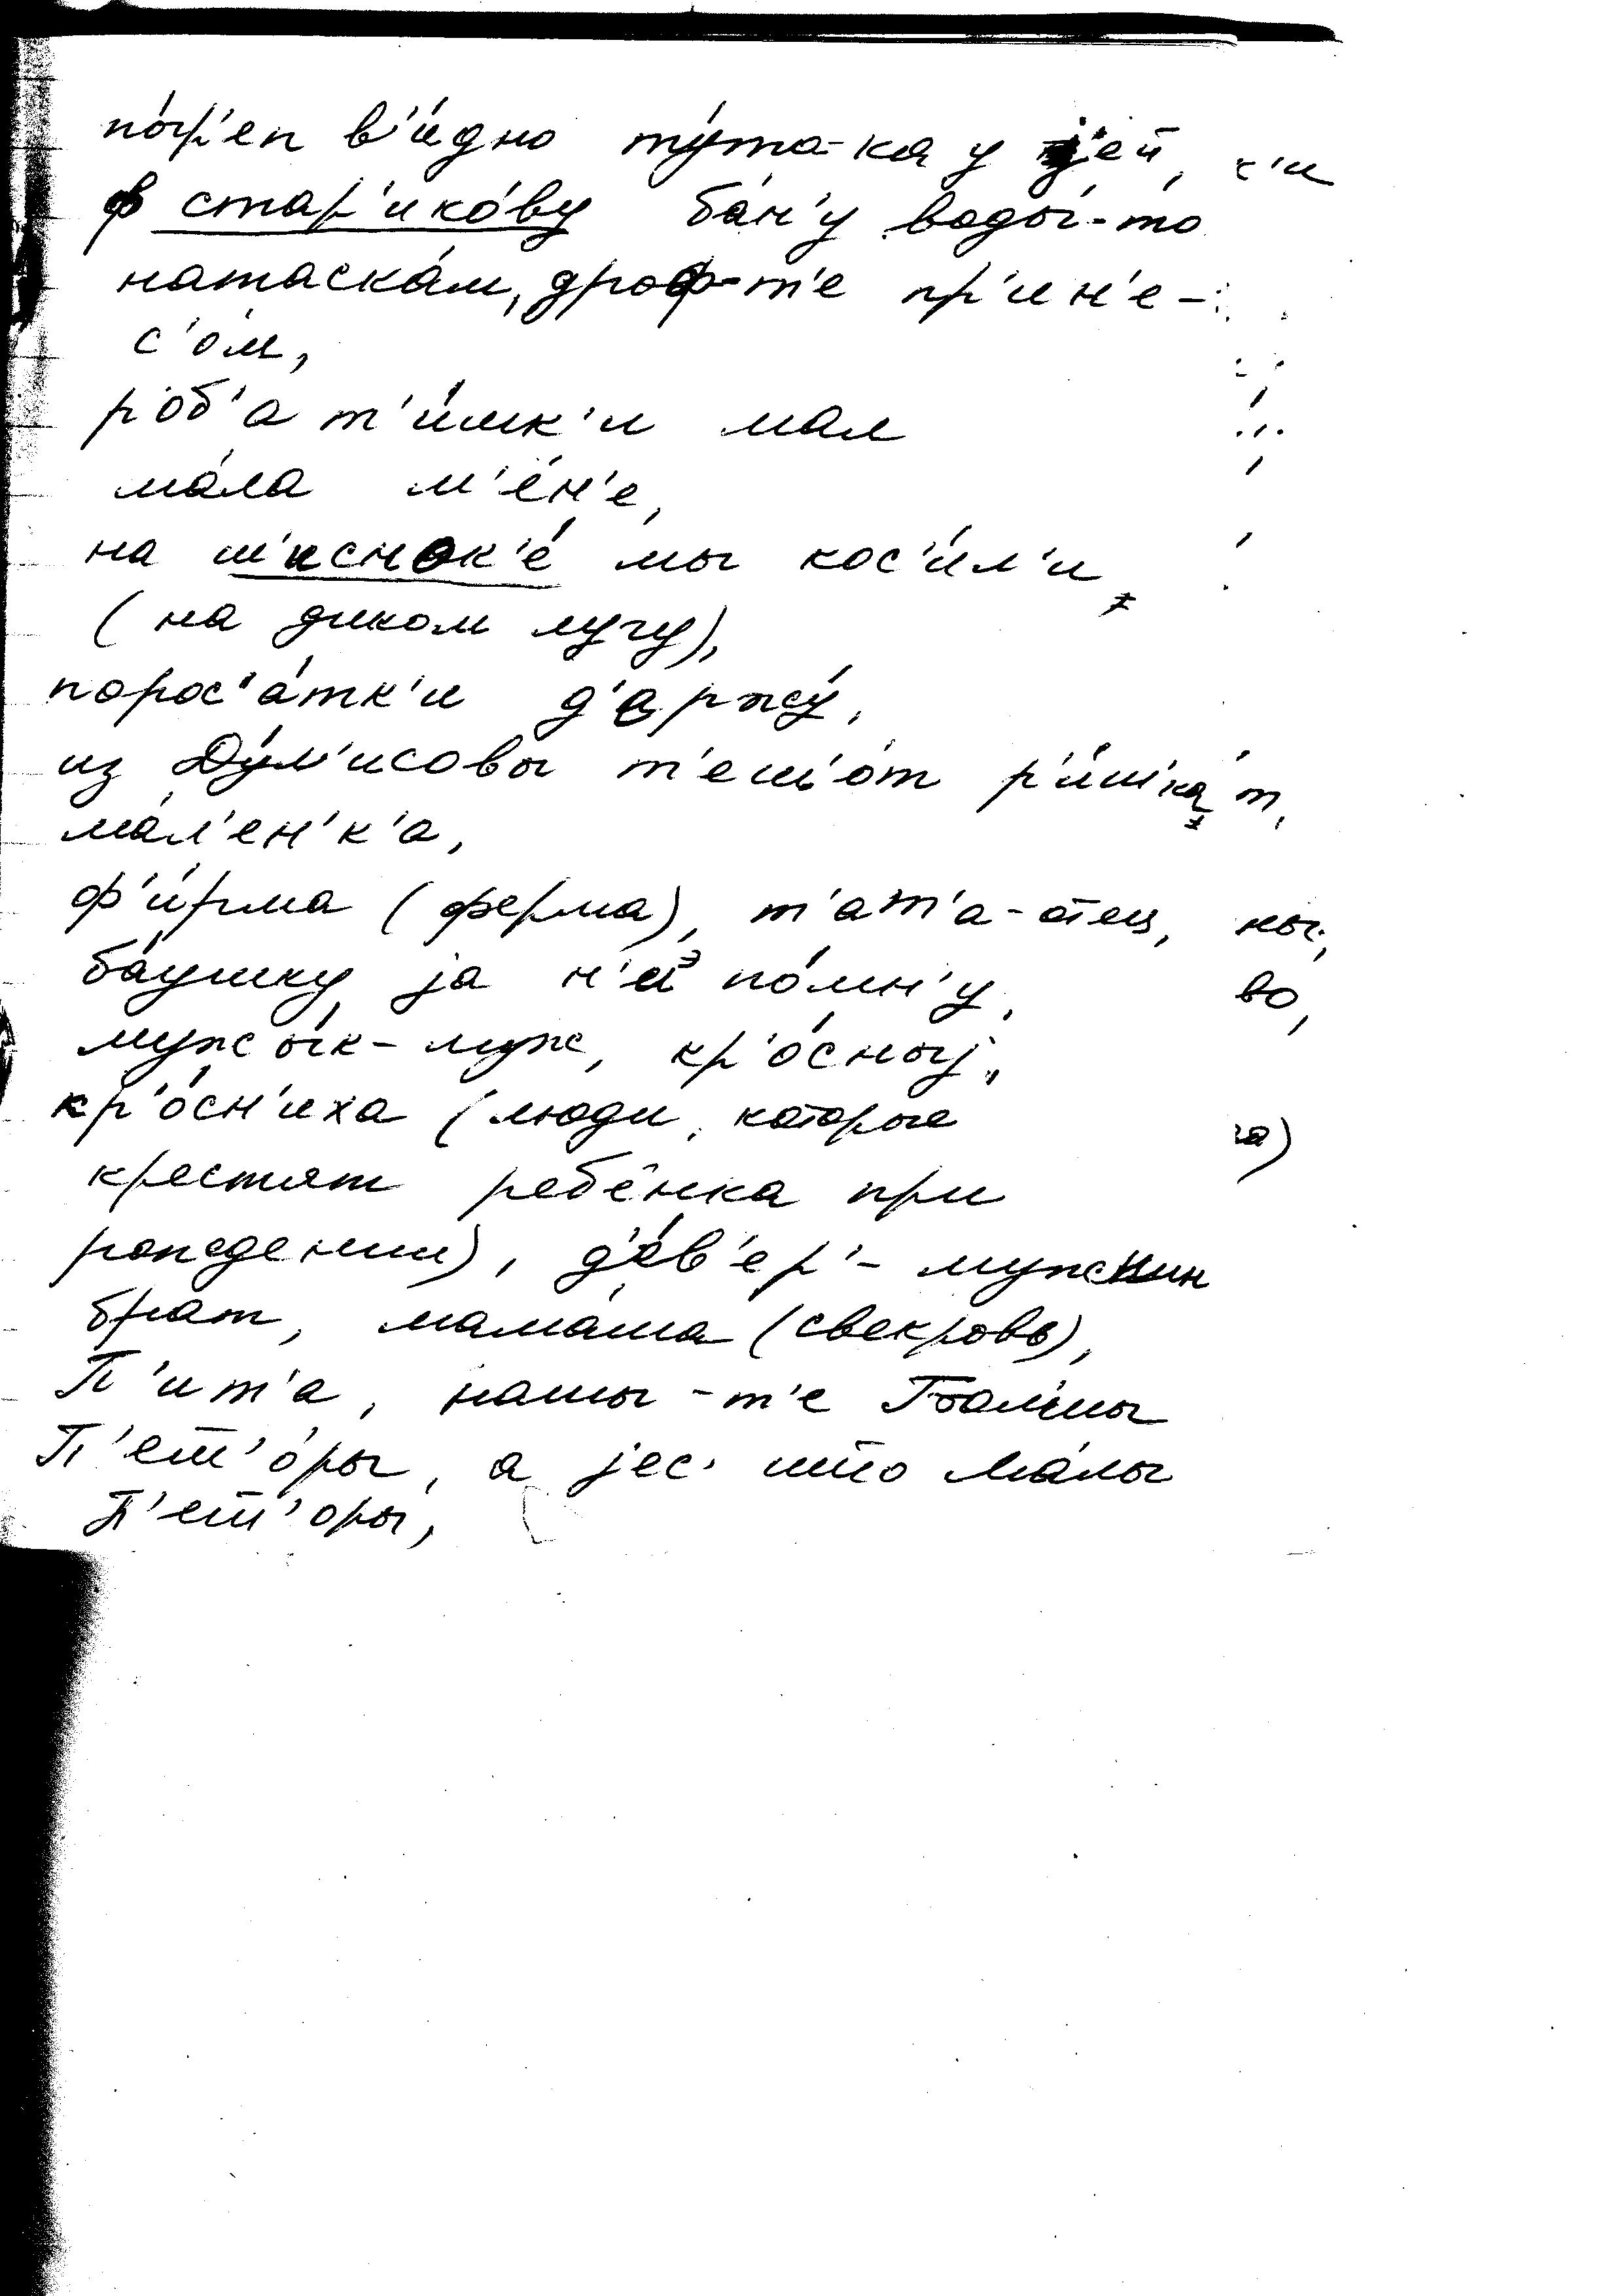 по́гр'еп в'и́дно ту́та-ка у јей,
ф стар'ико́ву ба́н'у воды́-то
натаска́м, дроф-т'е пр'ин'е-
с'о́м,
роб'ат'и́шк'и мал
ма́ла м'е́н'е,
на м'иснок'е́ мы кос'и́л'и,
(на диком лугу),
порос'а́тк'и д'аржу́,
из Ду́м'исовы т'еш'о́т р'и́ш'ка,
ма́л'ен'к'а,
ф'и́рма (ферма), т'а́т'а-отец, ны,
ба́ушку ја н'е по́мн'у, во,
мужы́к-муж, кр'о́сныј,
кр'о́сн'иха (люди, которые га)
крестят ребёнка при
рождении), д'е́в'ер'- мужнин
брат, мама́ша (свекровь),
П'ит'а, нашы-т'е
П'ет'о́ры, а јес' што ма́лы
П'ет'оры,